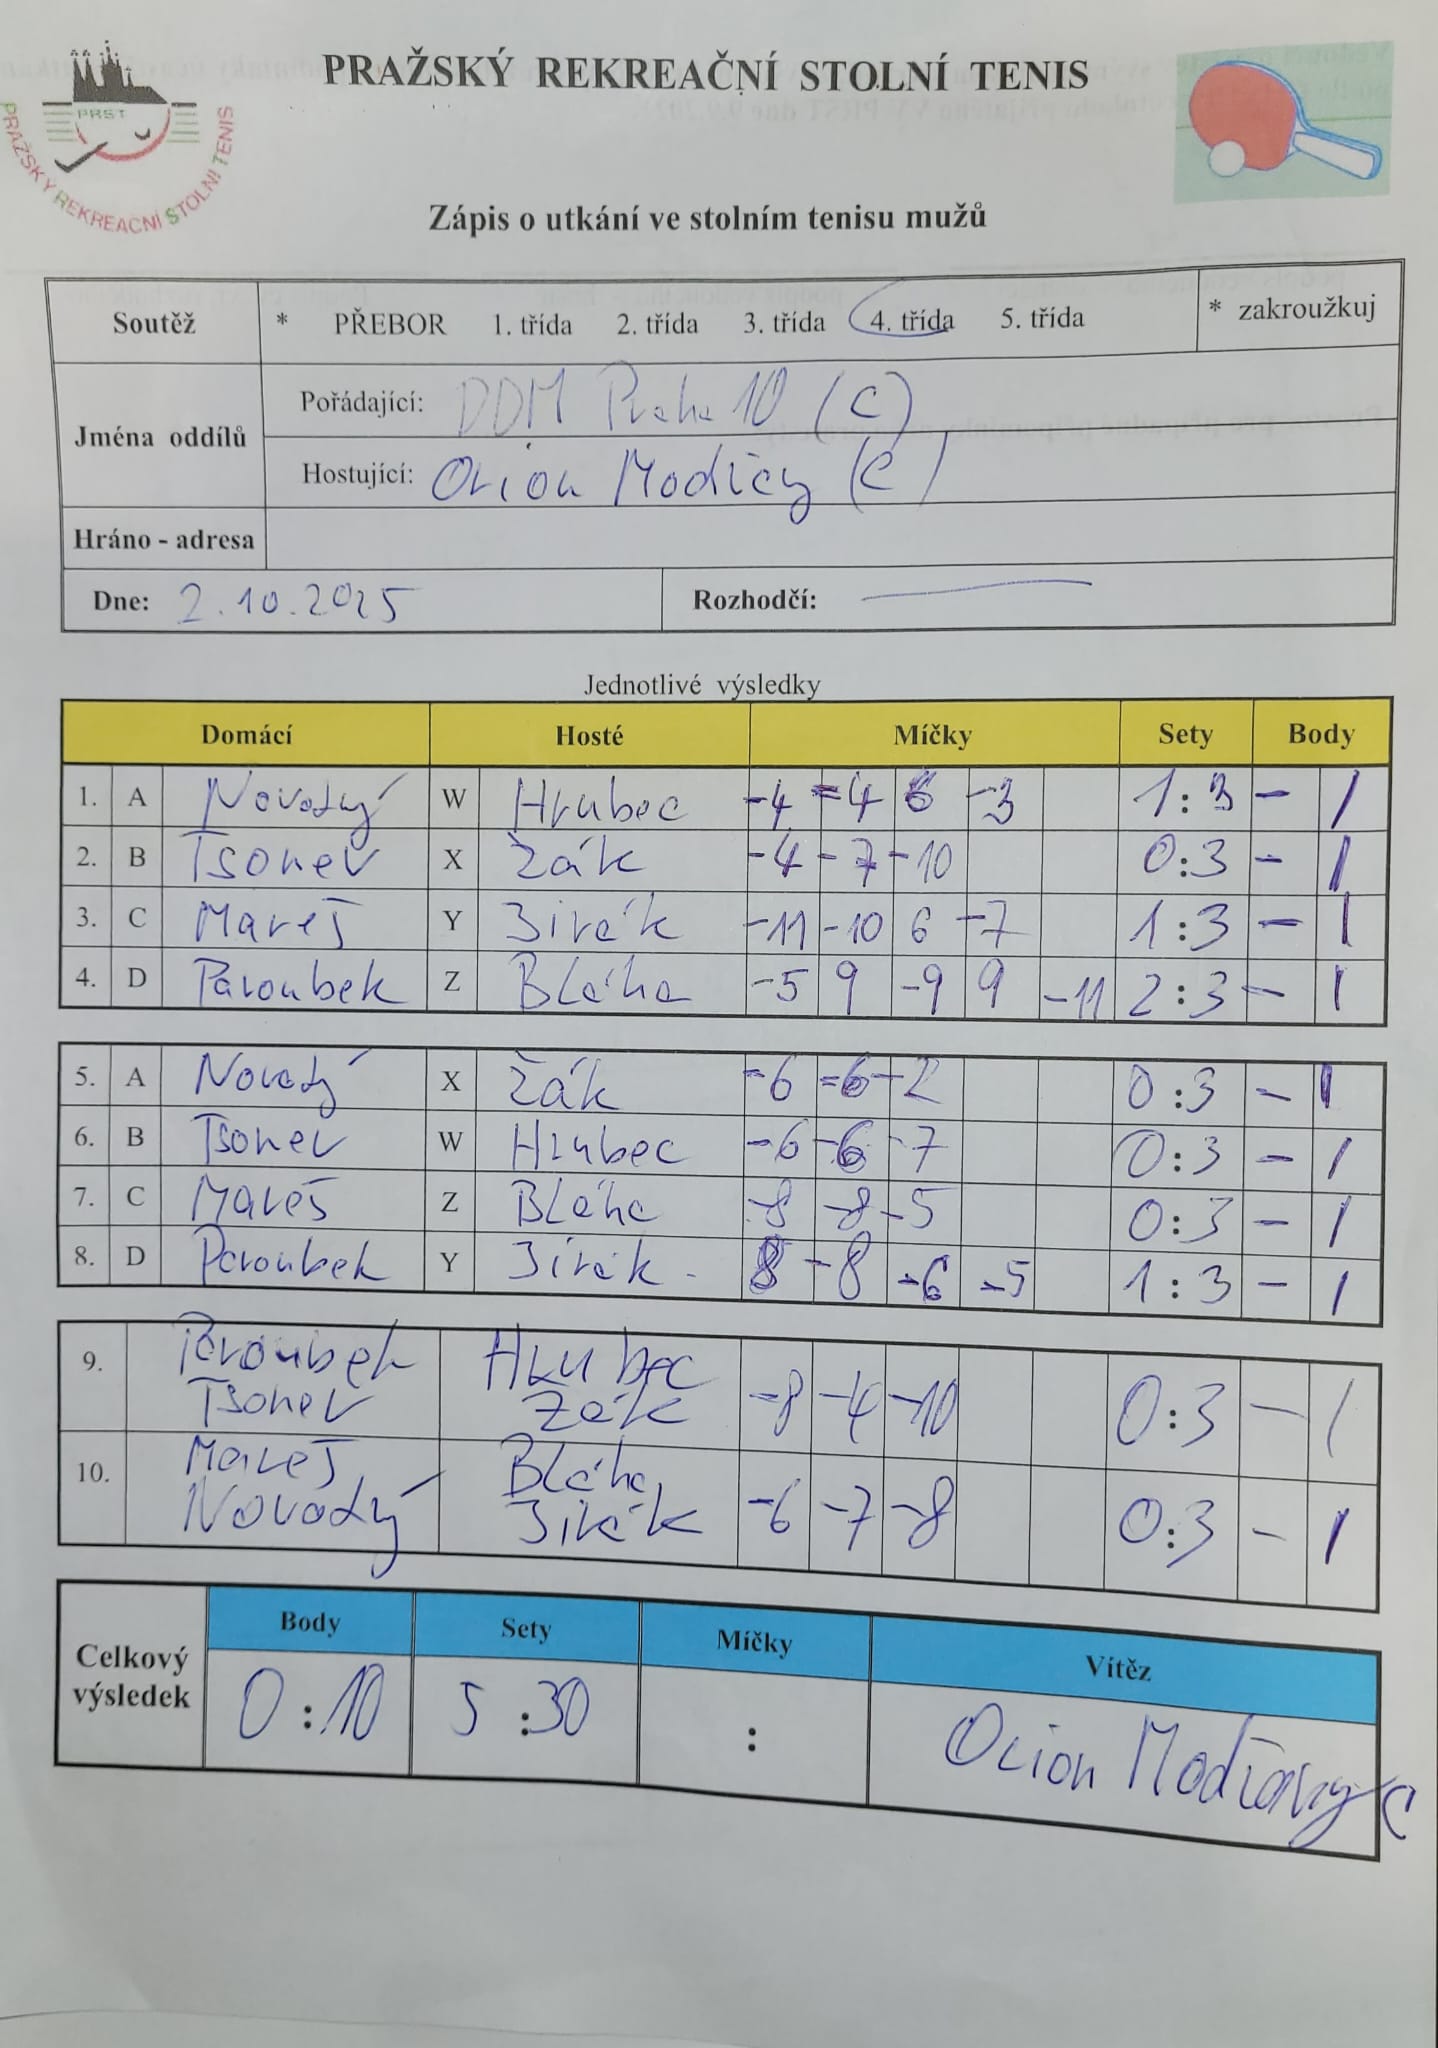 PRAŽSKÝ REKREAČNÍ STOLNÍ TENIS
PRST
PRAŽSKÝ REKREAČNÍ STOLNÍ TENIS
Zápis o utkání ve stolním tenisu mužů
Soutěž * PŘEBOR 1. třída 2. třída 3. třída 4. třída 5. třída * zakroužkuj
Jména oddílů
Pořádající: DDM Praha 10 (C)
Hostující: Orion Modřcy (C)
Hráno - adresa
Dne: 2.10.2025 Rozhodčí: —
Jednotlivé výsledky
Domácí Hosté Míčky Sety Body
1. A Novodný W Hrubec -4 -4 6 -3 1:3 - 1
2. B Tsonev X Žák -4 -7 -10 0:3 - 1
3. C Mareš Y Jirák -11 -10 6 -7 1:3 - 1
4. D Paroubek Z Bláha -5 9 -9 9 -11 2:3 - 1
5. A Novodný X Žák -6 -6 -2 0:3 - 1
6. B Tsonev W Hrubec -6 -6 -7 0:3 - 1
7. C Mareš Z Bláha -8 -8 -5 0:3 - 1
8. D Paroubek Y Jirák 8 -8 -6 -5 1:3 - 1
9. Paroubek Hrubec
Tsonev Žák -8 -4 -10 0:3 - 1
10. Mareš Bláha
Novodný Jirák -6 -7 -8 0:3 - 1
Celkový výsledek
Body Sety Míčky Vítěz
0:10 5:30 : Orion Modřany C